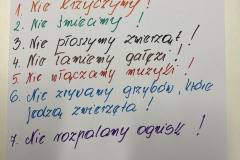 1. Nie krzyczymy!
2. Nie śmiecimy!
3. Nie płoszymy zwierząt!
4. Nie łamiemy gałęzi!
5. Nie włączamy muzyki!
6. Nie zrywamy grzybów, które
jedzą zwierzęta!
7. Nie rozpalamy ognisk!